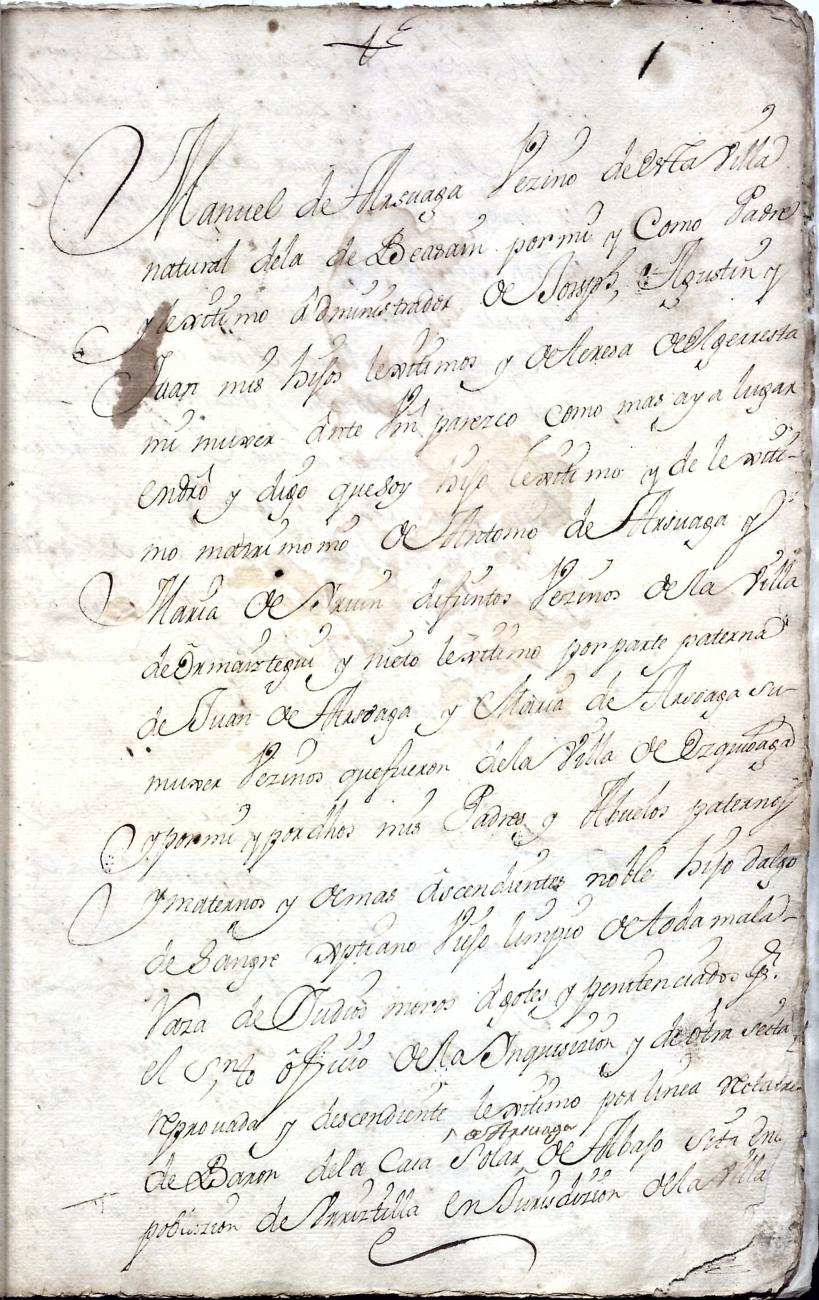 1
Manuel de Arsuaga Vezino de esta Villa
natural dela de Beasain por mi y Como Padre
y lexitimo administrador de Joseph, Agustin y
Juan mis hijos lexitimos y de teresa de Elgarresta
mi muxer ante Vm parezco como mas aya lugar
endro y digo que soy hijo lexitimo y de lexiti-
mo matrimonio de Antonio de Arsuaga y
Maria de Yrain difuntos Vezinos de la Villa
de Ormaiztegui y nieto lexitimo por parte paterna
de Juan de Arsoaga y Maria de Arsoaga su
muxer Vezinos quefueron dela Villa de Ezquioaga
y por mi y por dhos mis Padres y Abuelos paternos
y maternos y demas ascendientes noble hijo dalgo
de Sangre xptiano Viejo limpio de toda mala
Raza de Judios moros agotes y penitenciados Pr.
el Snto officio de la Inquisizion y de otra secta
reprouada y descendiente lexitimo por linea recta de
de Baron dela Casa Solar de Arsuaga de Abajo sita en
poblazion de Arriztilla en Jurisdizion de la Villa